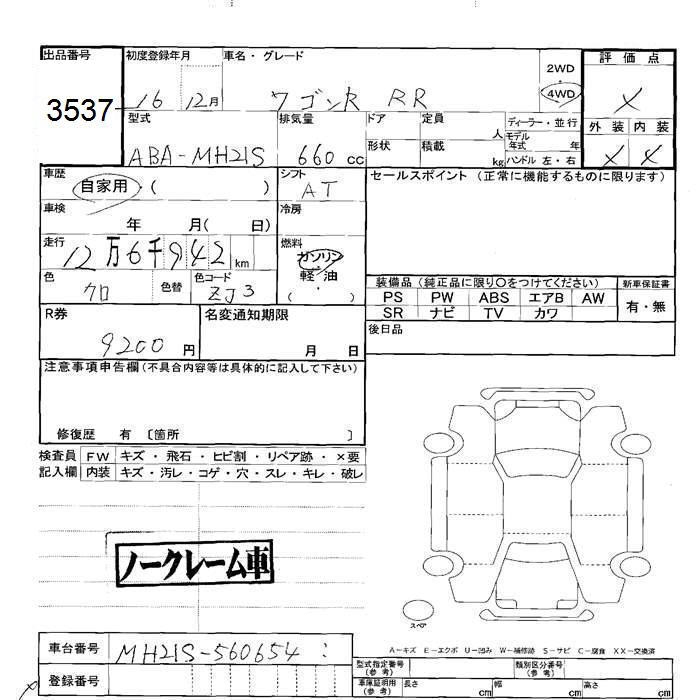 出品番号 初度登録年月 車名・グレード 評価点
3537 16 12月 ワゴンR RR 2WD 4WD ×
型式 排気量 ドア 定員 人 ディーラー・並行 外装 内装
ABA-MH21S 660 cc 形状 積載 kg モデル年式 年 ハンドル 左・右 × ×
車歴 自家用・( ) シフト AT セールスポイント (正常に機能するものに限ります)
車検 年 月( 日) 冷房
走行 12万6千942 km 燃料 ガソリン 軽油 ( )
色 クロ 色替 色コード ZJ3
装備品 (純正品に限り〇をつけてください) 新車保証書
PS PW ABS エアB AW 有・無
SR ナビ TV カワ
R券 9200 円 名変通知期限 月 日 後日品
注意事項申告欄 (不具合内容等は具体的に記入して下さい)
修復歴 有 〔箇所 〕
検査員 FW キズ・飛石・ヒビ割・リペア跡・×要
記入欄 内装 キズ・汚レ・コゲ・穴・スレ・キレ・破レ
ノークレーム車
スペア
A-キズ E-エクボ U-凹み W-補修跡 S-サビ C-腐食 XX-交換済
車台番号 MH21S-560654
型式指定番号 (参考) 類別区分番号 (参考)
登録番号 車庫証明用 (参考) 長さ cm 幅 cm 高さ cm